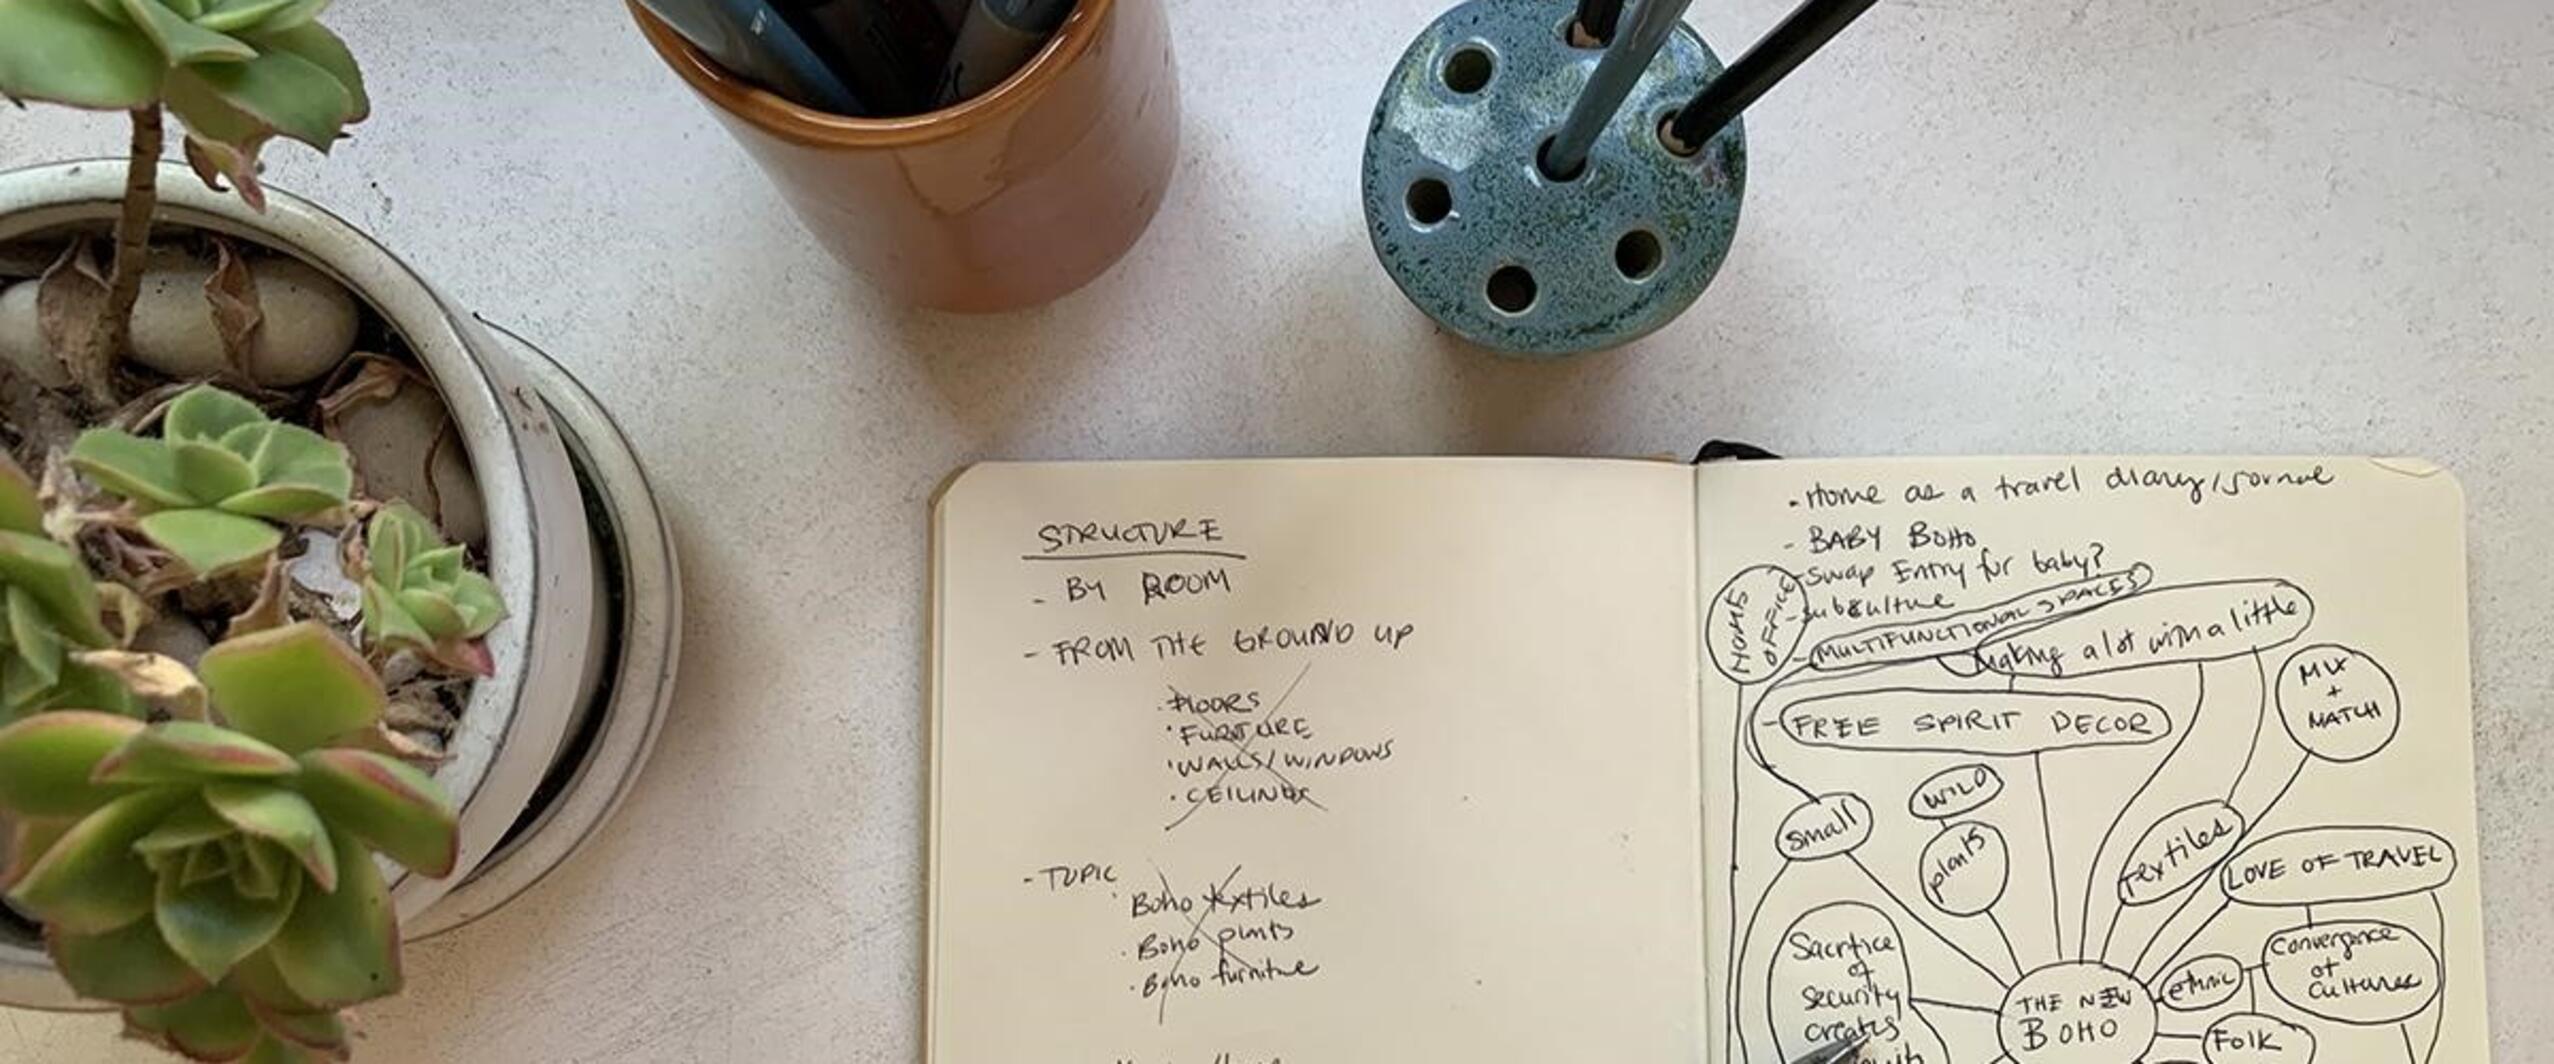 STRUCTURE
- BY ROOM
- FROM THE GROUND UP
· FLOORS
· FURNTURE
· WALLS/WINDOWS
· CEILINGS
- TOPIC
· Boho textiles
· Boho plants
· Boho furniture
- Home as a travel diary/journal
- BABY BOHO
- Swap Entry for baby?
- subculture
HOME
OFFICE
- MULTIFUNCTIONAL SPACES
Making a lot with a little
MIX
+
MATCH
- FREE SPIRIT DECOR
WILD
small
plants
textiles
LOVE OF TRAVEL
Sacrfice
of
Security
creates
Convergence
of
Cultures
ethnic
THE NEW
BOHO
Folk